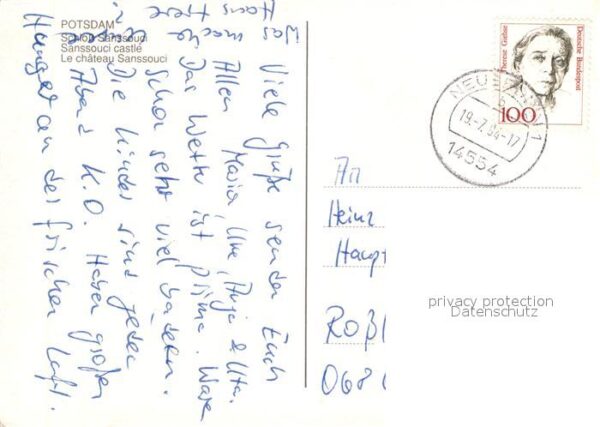 POTSDAM
Schloß Sanssouci
Sanssouci castle
Le château Sanssouci
Viele Grüße senden Euch
Allen Maria Uwe, Anja & Uta.
Das Wetter ist prima. Waren
schon sehr viel baden.
Die Kinder sind jeden
Abend K.O. Haben großen
Hunger an der frischen Luft.
Es
Therese Giehse
Deutsche Bundespost
100
19.-7.94-17
14554
An
Heinz
Haupt
Roßl
068
privacy protection
Datenschutz